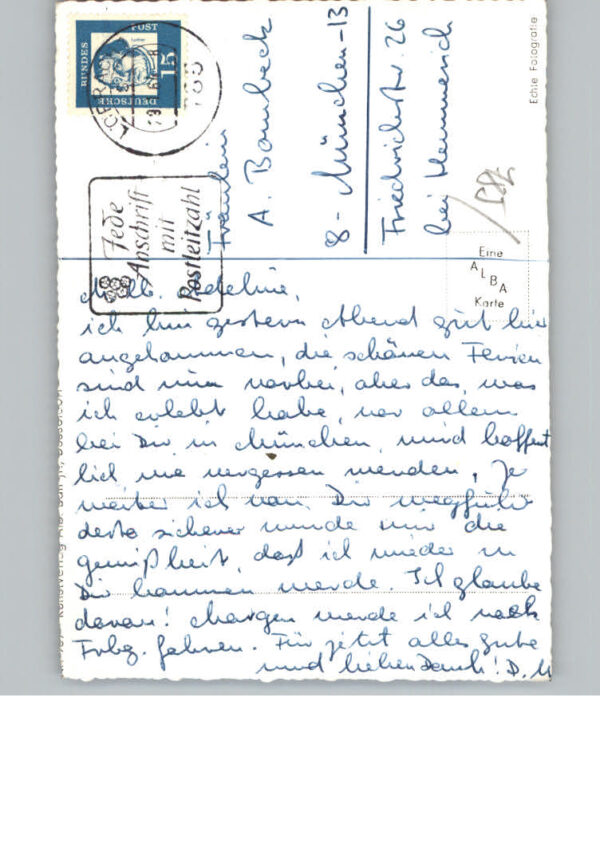 BUNDES POST
DEUTSCHE
15
Jede
Abschrift
mit
Postleitzahl
Fräulein
A. Bombeck
8 - München-13
Friedrichstr. 26
bei Hemmerich
Echte Fotografie
Eine
ALBA
Karte
M. lb. Adeline,
ich bin gestern Abend gut hier
angekommen, die schönen Ferien
sind nun vorbei, aber das, was
ich erlebt habe, vor allem
bei Dir in München, wird hoffent
lich nie vergessen werden. Je
weiter ich von Dir wegfuhr
desto sicherer wurde mir die
gewißheit, daß ich wieder zu
Dir kommen werde. Ich glaube
daran! Morgen werde ich nach
Frbg. fahren. Für jetzt alles gute
und lieben Dank! D. M